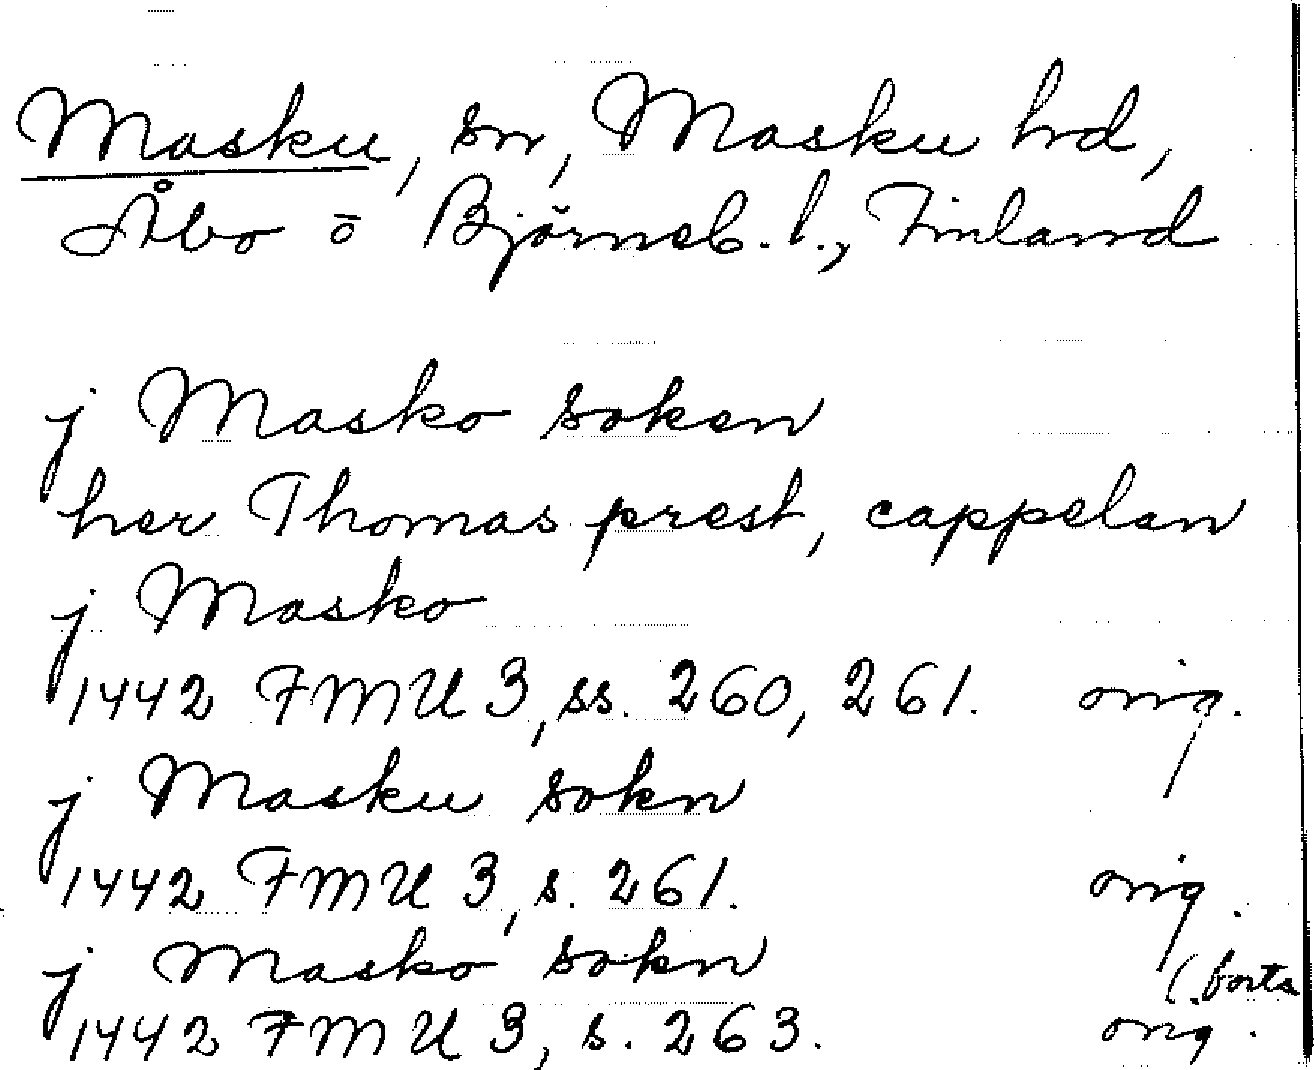 Masku, sn, Masku hrd,
Åbo ō Björneb. l., Finland
j Masko soken
her Thomas prest, cappelan
j Masko
1442 FMU 3, ss. 260, 261. orig.
j Masku sokn
1442 FMU 3, s. 261. orig.
j Masko sokn
(forts
1442 FMU 3, s. 263. orig.